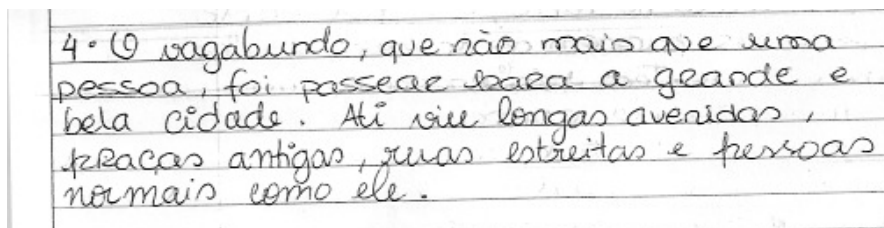 4. O vagabundo, que não mais que uma
pessoa, foi passear para a grande e
bela cidade. Ali viu longas avenidas,
praças antigas, ruas estreitas e pessoas
normais como ele.